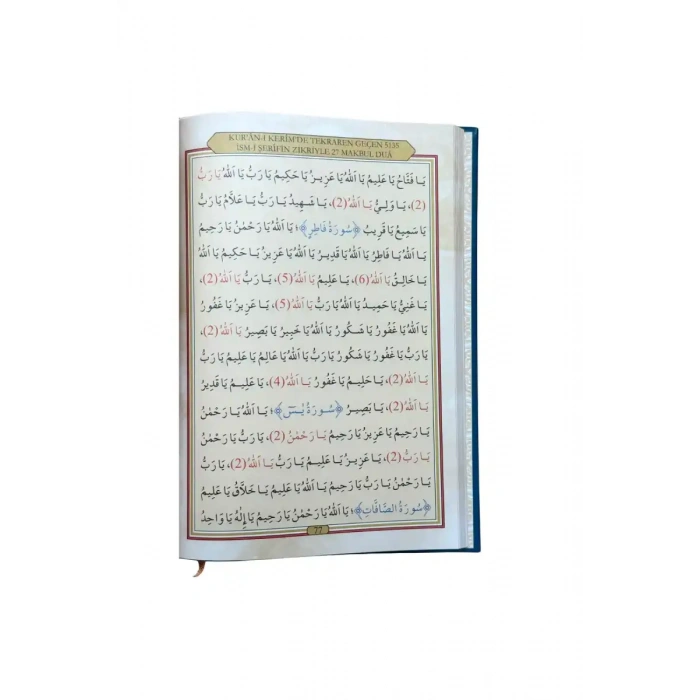 KUR'ÂN-I KERİM'DE TEKRAREN GEÇEN 5135
İSM-İ ŞERİFİN ZİKRİYLE 27 MAKBUL DUÂ
يَا فَتَّاحُ يَا عَلِيمُ يَا اَللهُ يَا عَزِيزُ يَا حَكِيمُ يَا رَبُّ يَا اَللهُ يَا رَبُّ
(2)، يَا وَلِيُّ يَا اَللهُ (2)، يَا شَهِيدُ يَا رَبُّ يَا عَلَّامُ يَا رَبُّ
يَا سَمِيعُ يَا قَرِيبُ ﴿سُورَةُ فَاطِرٍ﴾؛ يَا اَللهُ يَا رَحْمٰنُ يَا رَحِيمُ
يَا اَللهُ يَا فَاطِرُ يَا اَللهُ يَا قَدِيرُ يَا اَللهُ يَا عَزِيزُ يَا حَكِيمُ يَا اَللهُ
يَا خَالِقُ يَا اَللهُ (6)، يَا عَلِيمُ يَا اَللهُ (5)، يَا رَبُّ يَا اَللهُ (2)،
يَا غَنِيُّ يَا حَمِيدُ يَا اَللهُ يَا رَبُّ يَا اَللهُ (5)، يَا عَزِيزُ يَا غَفُورُ
يَا اَللهُ يَا غَفُورُ يَا شَكُورُ يَا اَللهُ يَا خَبِيرُ يَا بَصِيرُ يَا اَللهُ (2)،
يَا رَبُّ يَا غَفُورُ يَا شَكُورُ يَا رَبُّ يَا اَللهُ يَا عَالِمُ يَا عَلِيمُ يَا رَبُّ
يَا اَللهُ (2)، يَا حَلِيمُ يَا غَفُورُ يَا اَللهُ (4)، يَا عَلِيمُ يَا قَدِيرُ
يَا اَللهُ (2)، يَا بَصِيرُ ﴿سُورَةُ يٰسٓ﴾؛ يَا اَللهُ يَا رَحْمٰنُ
يَا رَحِيمُ يَا عَزِيزُ يَا رَحِيمُ يَا رَحْمٰنُ (2)، يَا رَبُّ يَا رَحْمٰنُ
يَا رَبُّ (2)، يَا عَزِيزُ يَا عَلِيمُ يَا رَبُّ يَا اَللهُ (2)، يَا رَبُّ
يَا رَحْمٰنُ يَا رَبُّ يَا رَحِيمُ يَا اَللهُ يَا عَلِيمُ يَا خَلَّاقُ يَا عَلِيمُ
﴿سُورَةُ الصَّافَّاتِ﴾؛ يَا اَللهُ يَا رَحْمٰنُ يَا رَحِيمُ يَا إِلٰهُ يَا وَاحِدُ
77